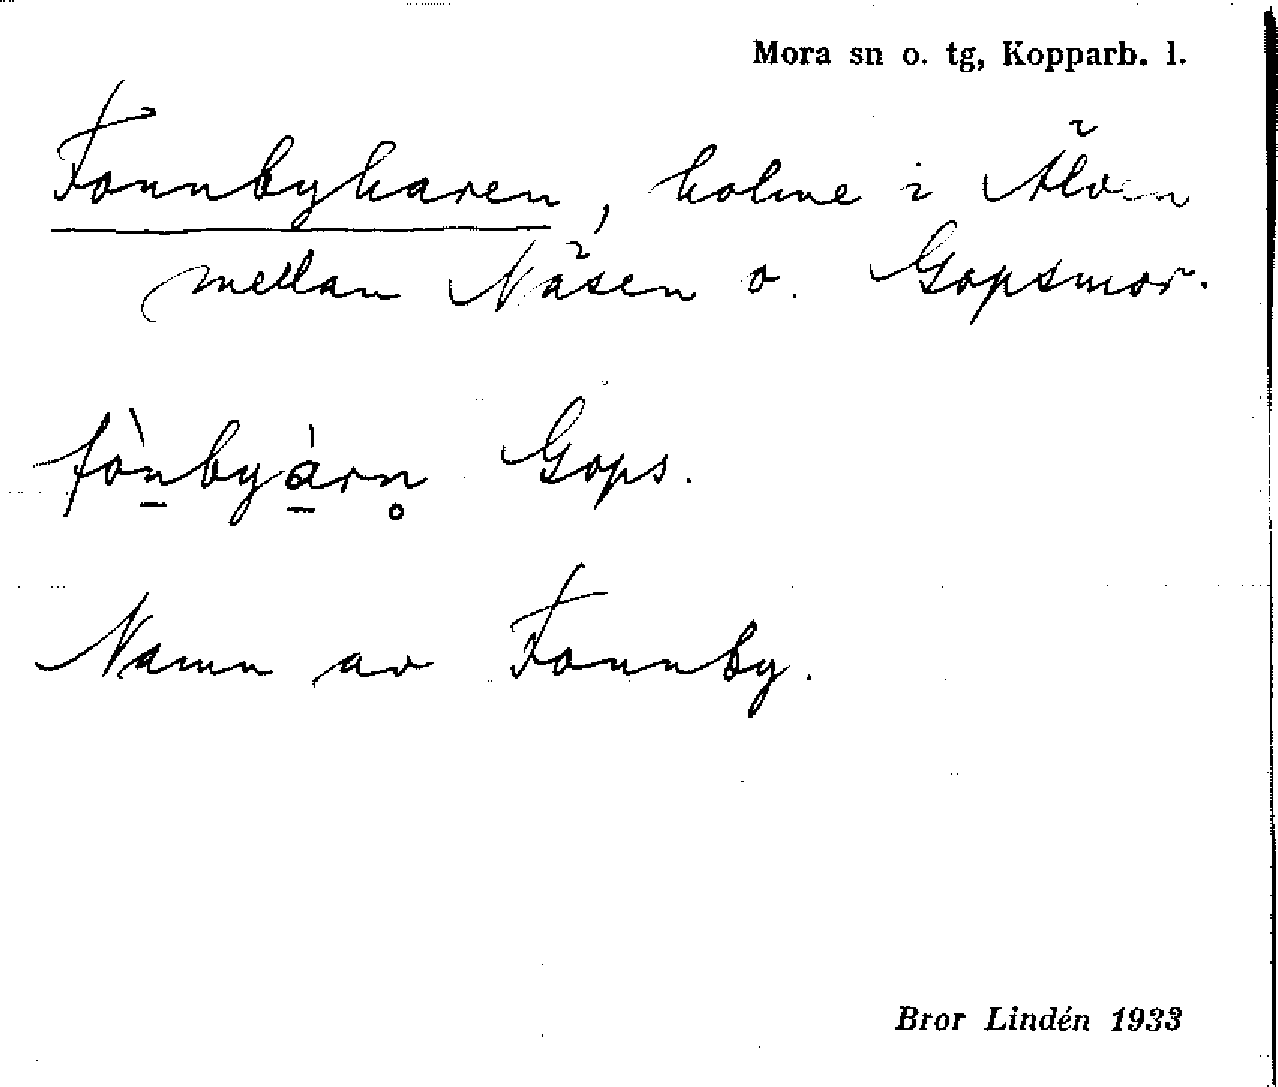 Mora sn o. tg, Kopparb. l.
Fonnbyharen, holme i Älven
mellan Näsen o. Gopsmor.
fò̱nbyà̱rn̥ Gops.
Namn av Fonnby.
Bror Lindén 1933